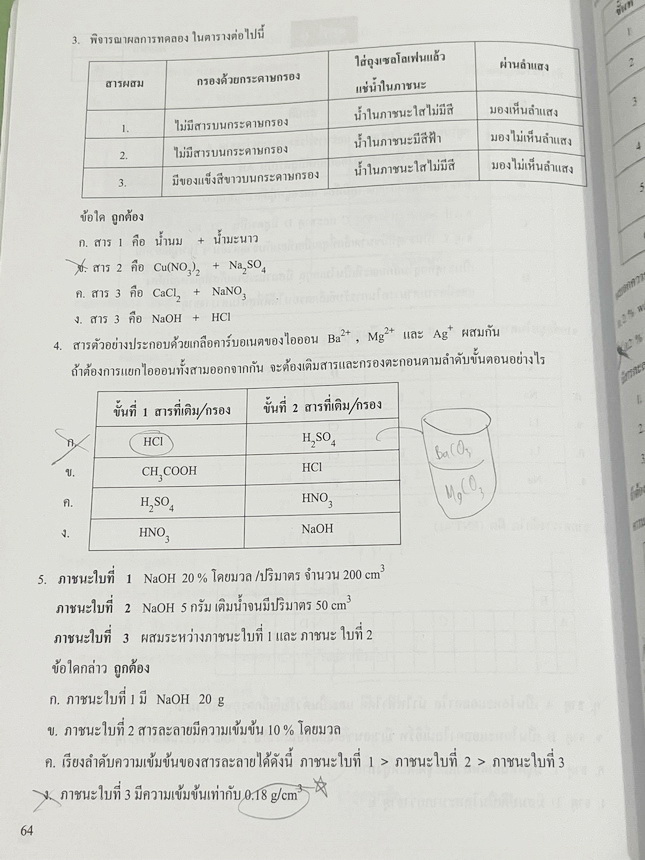 3. พิจารณาผลการทดลอง ในตารางต่อไปนี้
สารผสม กรองด้วยกระดาษกรอง ใส่ถุงเซลโลเฟนแล้ว ผ่านลำแสง
แช่น้ำในภาชนะ
1. ไม่มีสารบนกระดาษกรอง น้ำในภาชนะใสไม่มีสี มองเห็นลำแสง
2. ไม่มีสารบนกระดาษกรอง น้ำในภาชนะมีสีฟ้า มองไม่เห็นลำแสง
3. มีของแข็งสีขาวบนกระดาษกรอง น้ำในภาชนะใสไม่มีสี มองไม่เห็นลำแสง
ข้อใด ถูกต้อง
ก. สาร 1 คือ น้ำนม + น้ำมะนาว
ข. สาร 2 คือ Cu(NO₃)₂ + Na₂SO₄
ค. สาร 3 คือ CaCl₂ + NaNO₃
ง. สาร 3 คือ NaOH + HCl
4. สารตัวอย่างประกอบด้วยเกลือคาร์บอเนตของไอออน Ba²⁺ , Mg²⁺ และ Ag⁺ ผสมกัน
ถ้าต้องการแยกไอออนทั้งสามออกจากกัน จะต้องเติมสารและกรองตะกอนตามลำดับขั้นตอนอย่างไร
ขั้นที่ 1 สารที่เติม/กรอง ขั้นที่ 2 สารที่เติม/กรอง
ก. HCl H₂SO₄
ข. CH₃COOH HCl
ค. H₂SO₄ HNO₃
ง. HNO₃ NaOH
BaCO₃
MgCO₃
5. ภาชนะใบที่ 1 NaOH 20 % โดยมวล /ปริมาตร จำนวน 200 cm³
ภาชนะใบที่ 2 NaOH 5 กรัม เติมน้ำจนมีปริมาตร 50 cm³
ภาชนะใบที่ 3 ผสมระหว่างภาชนะใบที่ 1 และ ภาชนะ ใบที่ 2
ข้อใดกล่าว ถูกต้อง
ก. ภาชนะใบที่ 1 มี NaOH 20 g
ข. ภาชนะใบที่ 2 สารละลายมีความเข้มข้น 10 % โดยมวล
ค. เรียงลำดับความเข้มข้นของสารละลายได้ดังนี้ ภาชนะใบที่ 1 > ภาชนะใบที่ 2 > ภาชนะใบที่ 3
ง. ภาชนะใบที่ 3 มีความเข้มข้นเท่ากับ 0.18 g/cm³
64